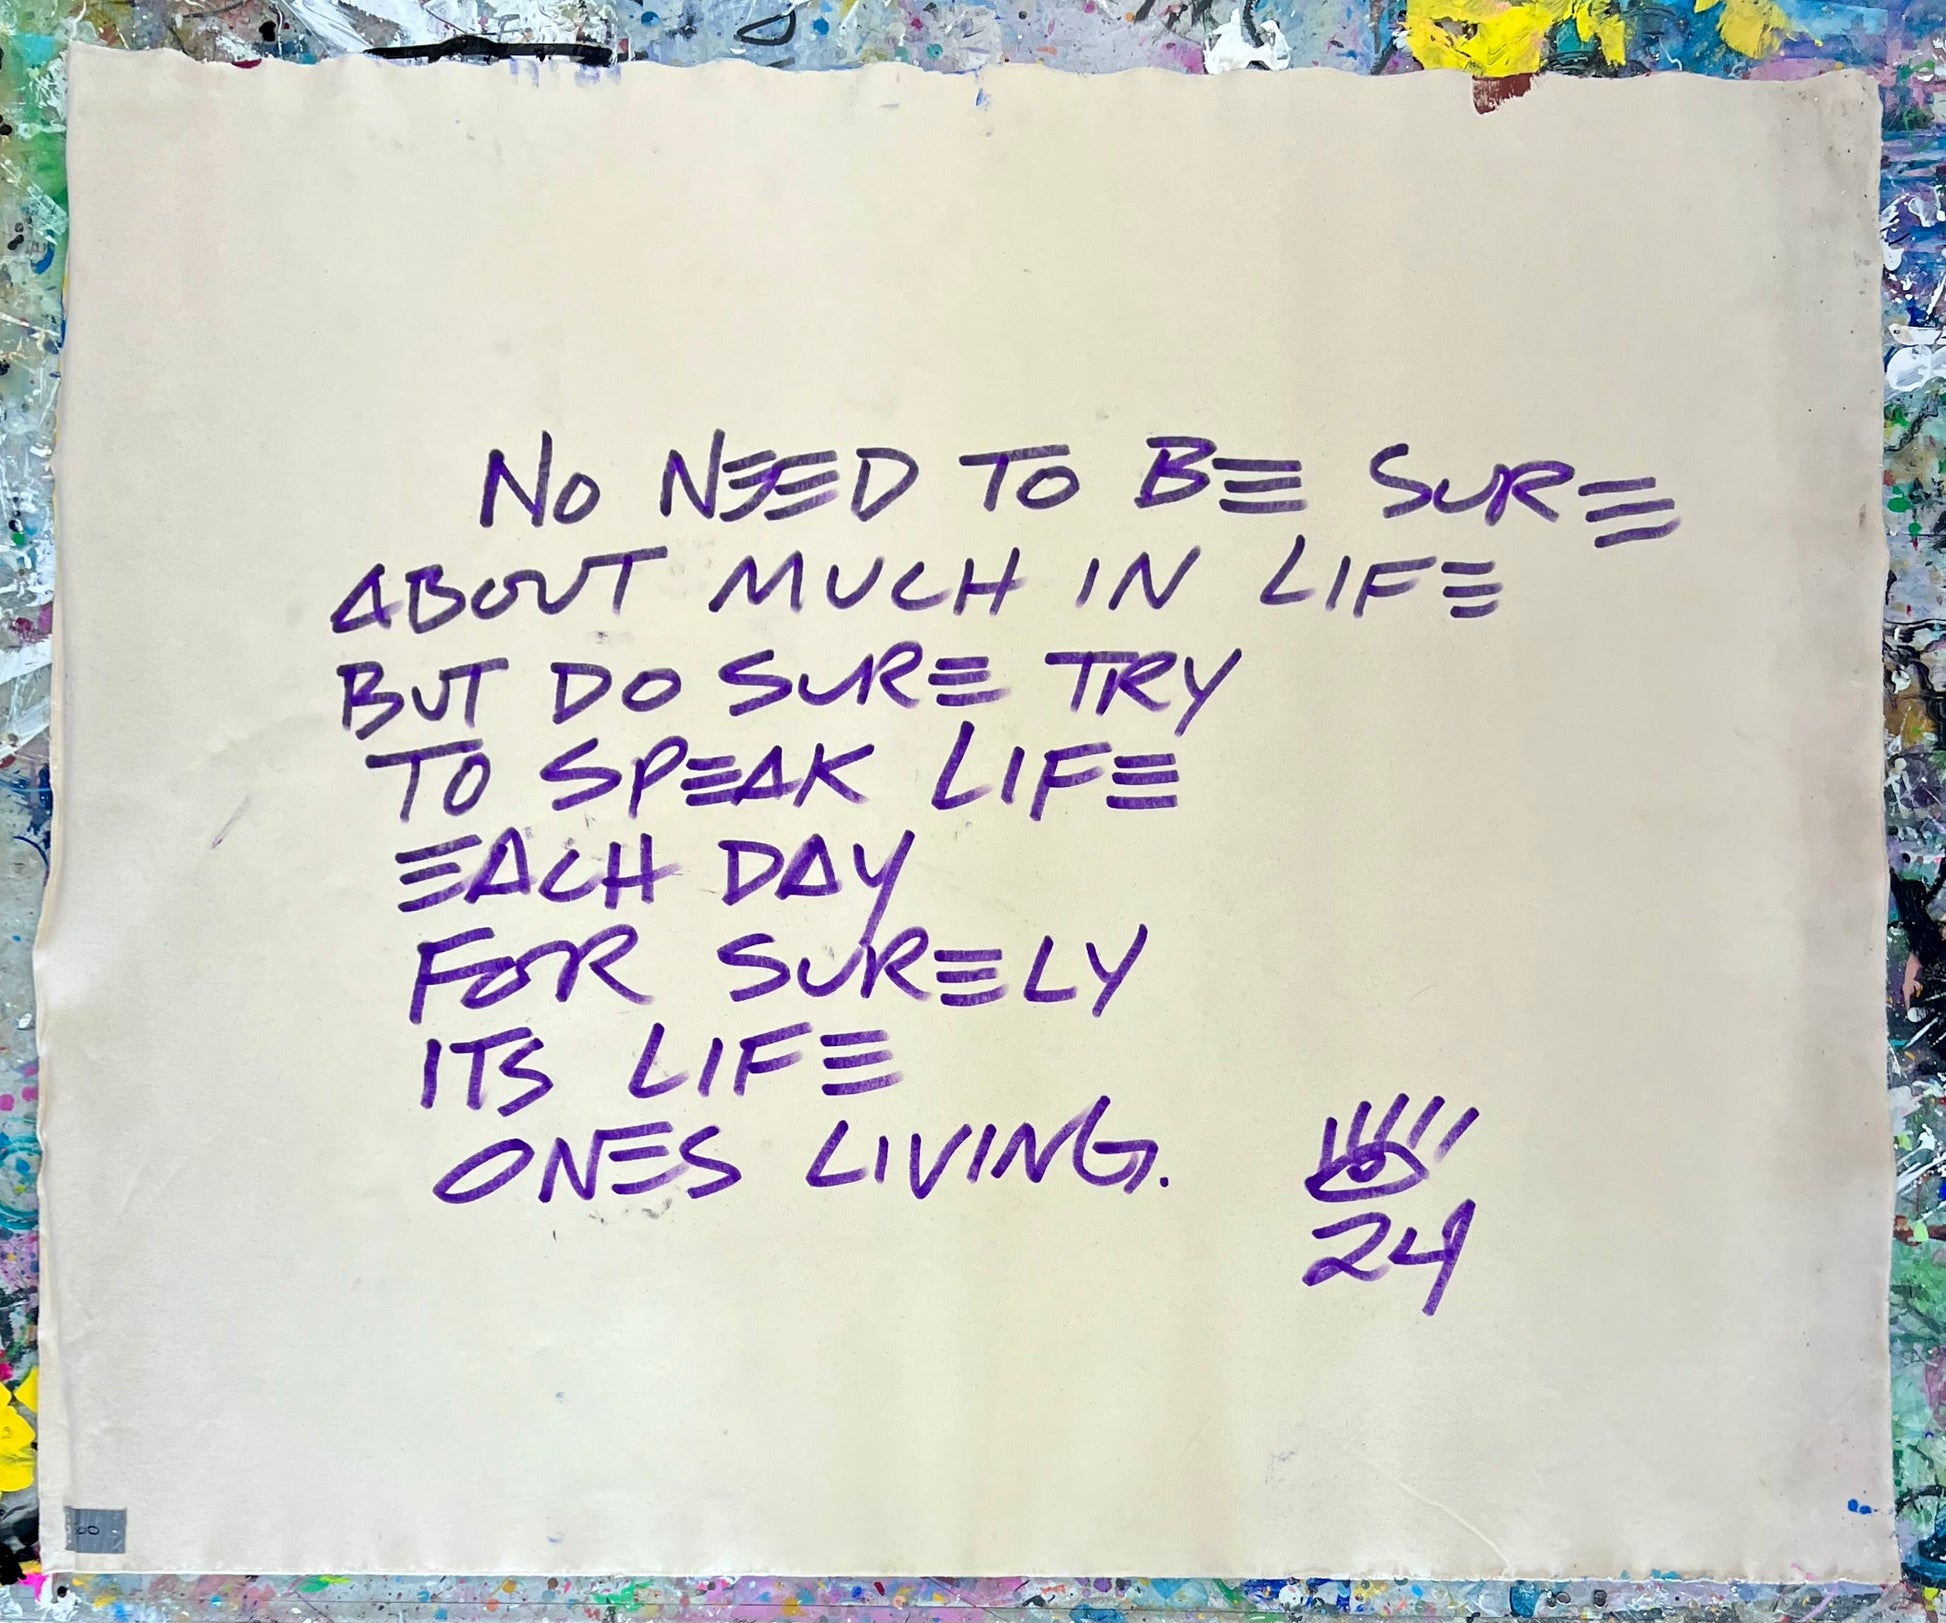 NO NEED TO BE SURE
ABOUT MUCH IN LIFE
BUT DO SURE TRY
TO SPEAK LIFE
EACH DAY
FOR SURELY
ITS LIFE
ONES LIVING.
24